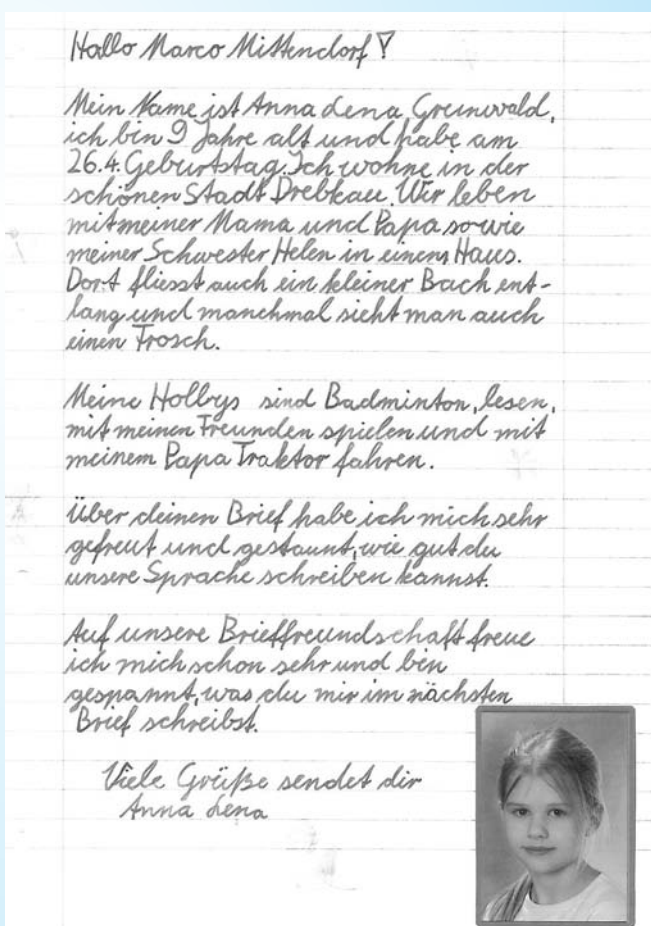 Hallo Marco Mittendorf!
Mein Name ist Anna Lena Grunwald,
ich bin 9 Jahre alt und habe am
26.4. Geburtstag. Ich wohne in der
schönen Stadt Drebkau. Wir leben
mit meiner Mama und Papa sowie
meiner Schwester Helen in einem Haus.
Dort fliesst auch ein kleiner Bach ent-
lang und manchmal sieht man auch
einen Frosch.
Meine Hobbys sind Badminton, lesen,
mit meinen Freunden spielen und mit
meinem Papa Traktor fahren.
Über deinen Brief habe ich mich sehr
gefreut und gestaunt, wie gut du
unsere Sprache schreiben kannst.
Auf unsere Brieffreundschaft freue
ich mich schon sehr und bin
gespannt, was du mir im nächsten
Brief schreibst.
Viele Grüße sendet dir
Anna Lena